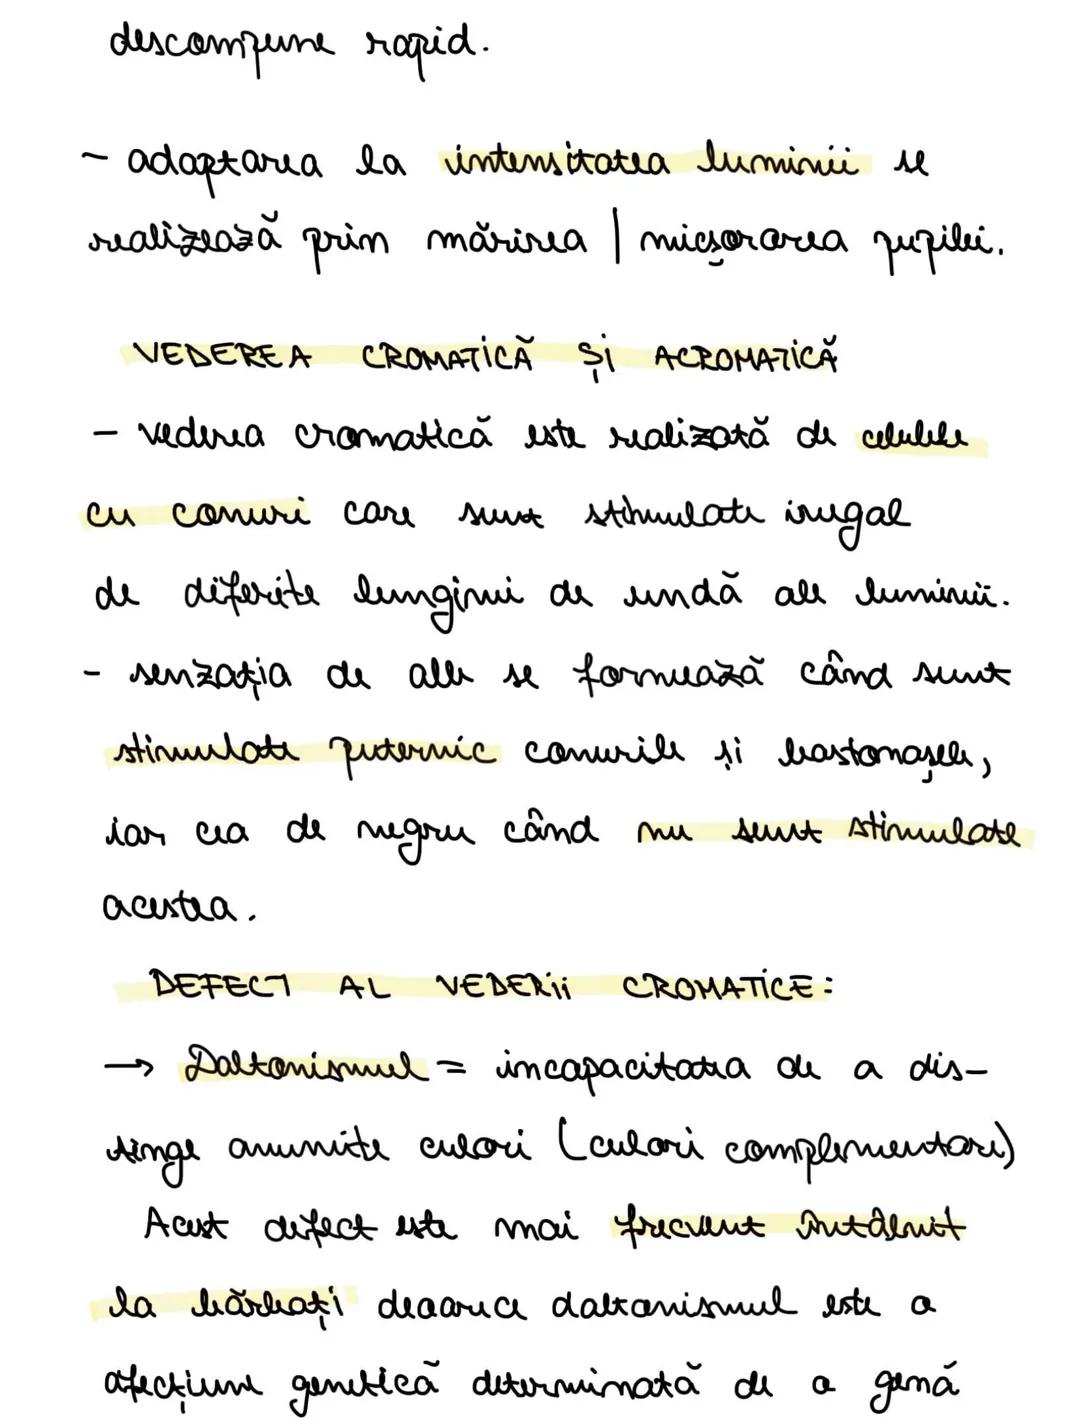 descompune rapid.
- adaptarea la intensitatea luminii se
realizează prin mărirea | micșorarea pupilei.
VEDEREA CROMATICĂ ȘI ACROMATICĂ
- vederea cromatică este realizată de celulele
cu conuri care sunt stimulate inegal
de diferite lungimi de undă ale luminii.
- senzația de alb se formează când sunt
stimulate puternic conurile și bastonașele,
iar cea de negru când nu sunt stimulate
acestea.
DEFECT AL VEDERII CROMATICE:
→ Daltonismul = incapacitatea de a dis-
tinge anumite culori (culori complementare)
Acest defect este mai frecvent întâlnit
la bărbați deoarece daltonismul este o
afecțiune genetică determinată de o genă